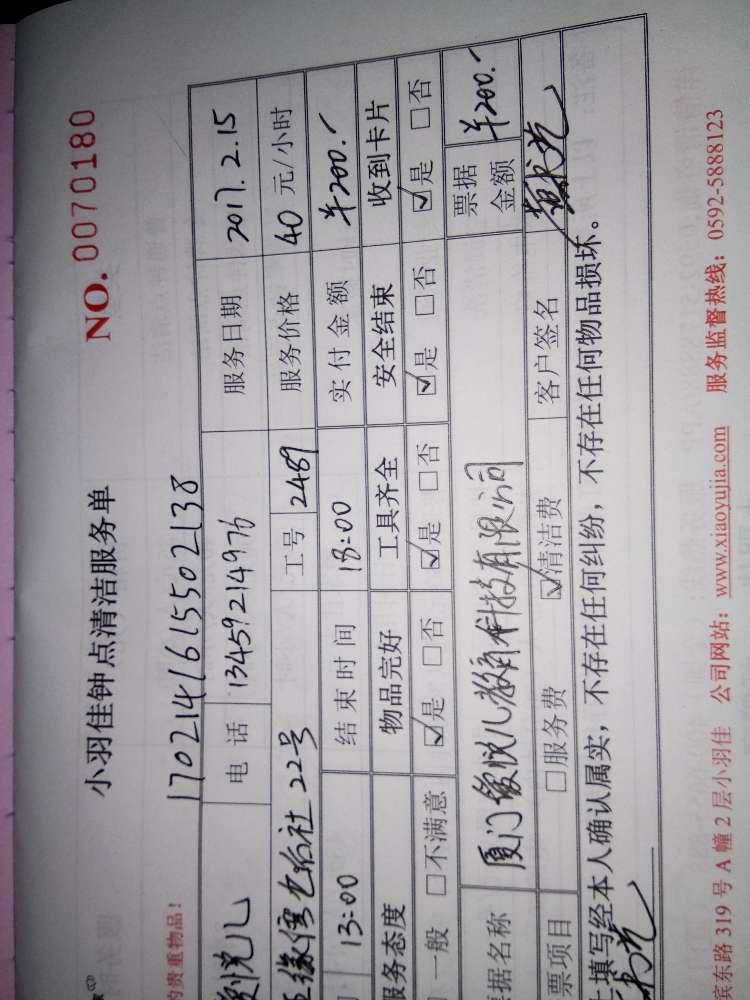 小羽佳钟点清洁服务单 NO. 0070180
的贵重物品! 170214161550213８
悦儿 电话 13459214976 服务日期 2017.2.15
22号 工号 2489 服务价格 40 元/小时
13:00 结束时间 18:00 实付金额 ¥200.
服务态度 物品完好 工具齐全 安全结束 收到卡片
一般 □不满意 ☑是 □否 ☑是 □否 ☑是 □否 ☑是 □否
据名称 厦门馥悦儿教育科技有限公司 票据金额 ¥200.
票项目 □服务费 ☑清洁费 客户签名
填写经本人确认属实，不存在任何纠纷，不存在任何物品损坏。
宾东路 319 号 A 幢 2 层小羽佳 公司网站：www.xiaoyujia.com 服务监督热线：0592-5888123